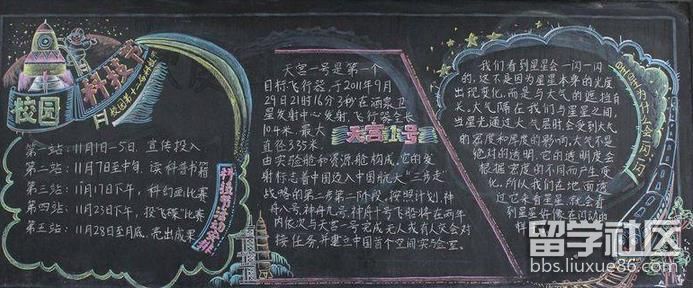 校园
科技节
校园第十二届科技
第一站：11月1日-5日，宣传投入
第二站：11月7日至中旬，读科普书籍
第三站：11月17日下午，科幻画比赛
第四站：11月23日下午，投飞碟比赛
第五站：11月28日至月底，亮出成果
天宫一号是第一个
目标飞行器，于2011年9月
29日21时16分3秒在酒泉卫
星发射中心发射，飞行器全长
10.4米，最大
直径3.35米，
天宫1号
由实验舱和资源舱构成，它的发
射标志着中国迈入中国航天"三步走"
战略的第二步第二阶段，按照计划，神
舟八号、神舟九号、神舟十号飞船将在两年
内依次与天宫一号完成无人或有人交会对
接任务，并建立中国首个空间实验室。
我们看到星星会一闪一闪
的，这不是因为星星本身的光度
出现变化，而是与大气的遮挡有
关，大气隔在我们与星星之间，
当星光通过大气层时会受到大气
的密度和厚度的影响，大气不是
绝对的透明，它的透明度会
根据密度的不同而产生变
化，所以我们在地面透
过它来看星星，就会看
到星星好像在闪动的
样
星星为什么会一闪一闪
留学社区
bbs.liuxue86.com